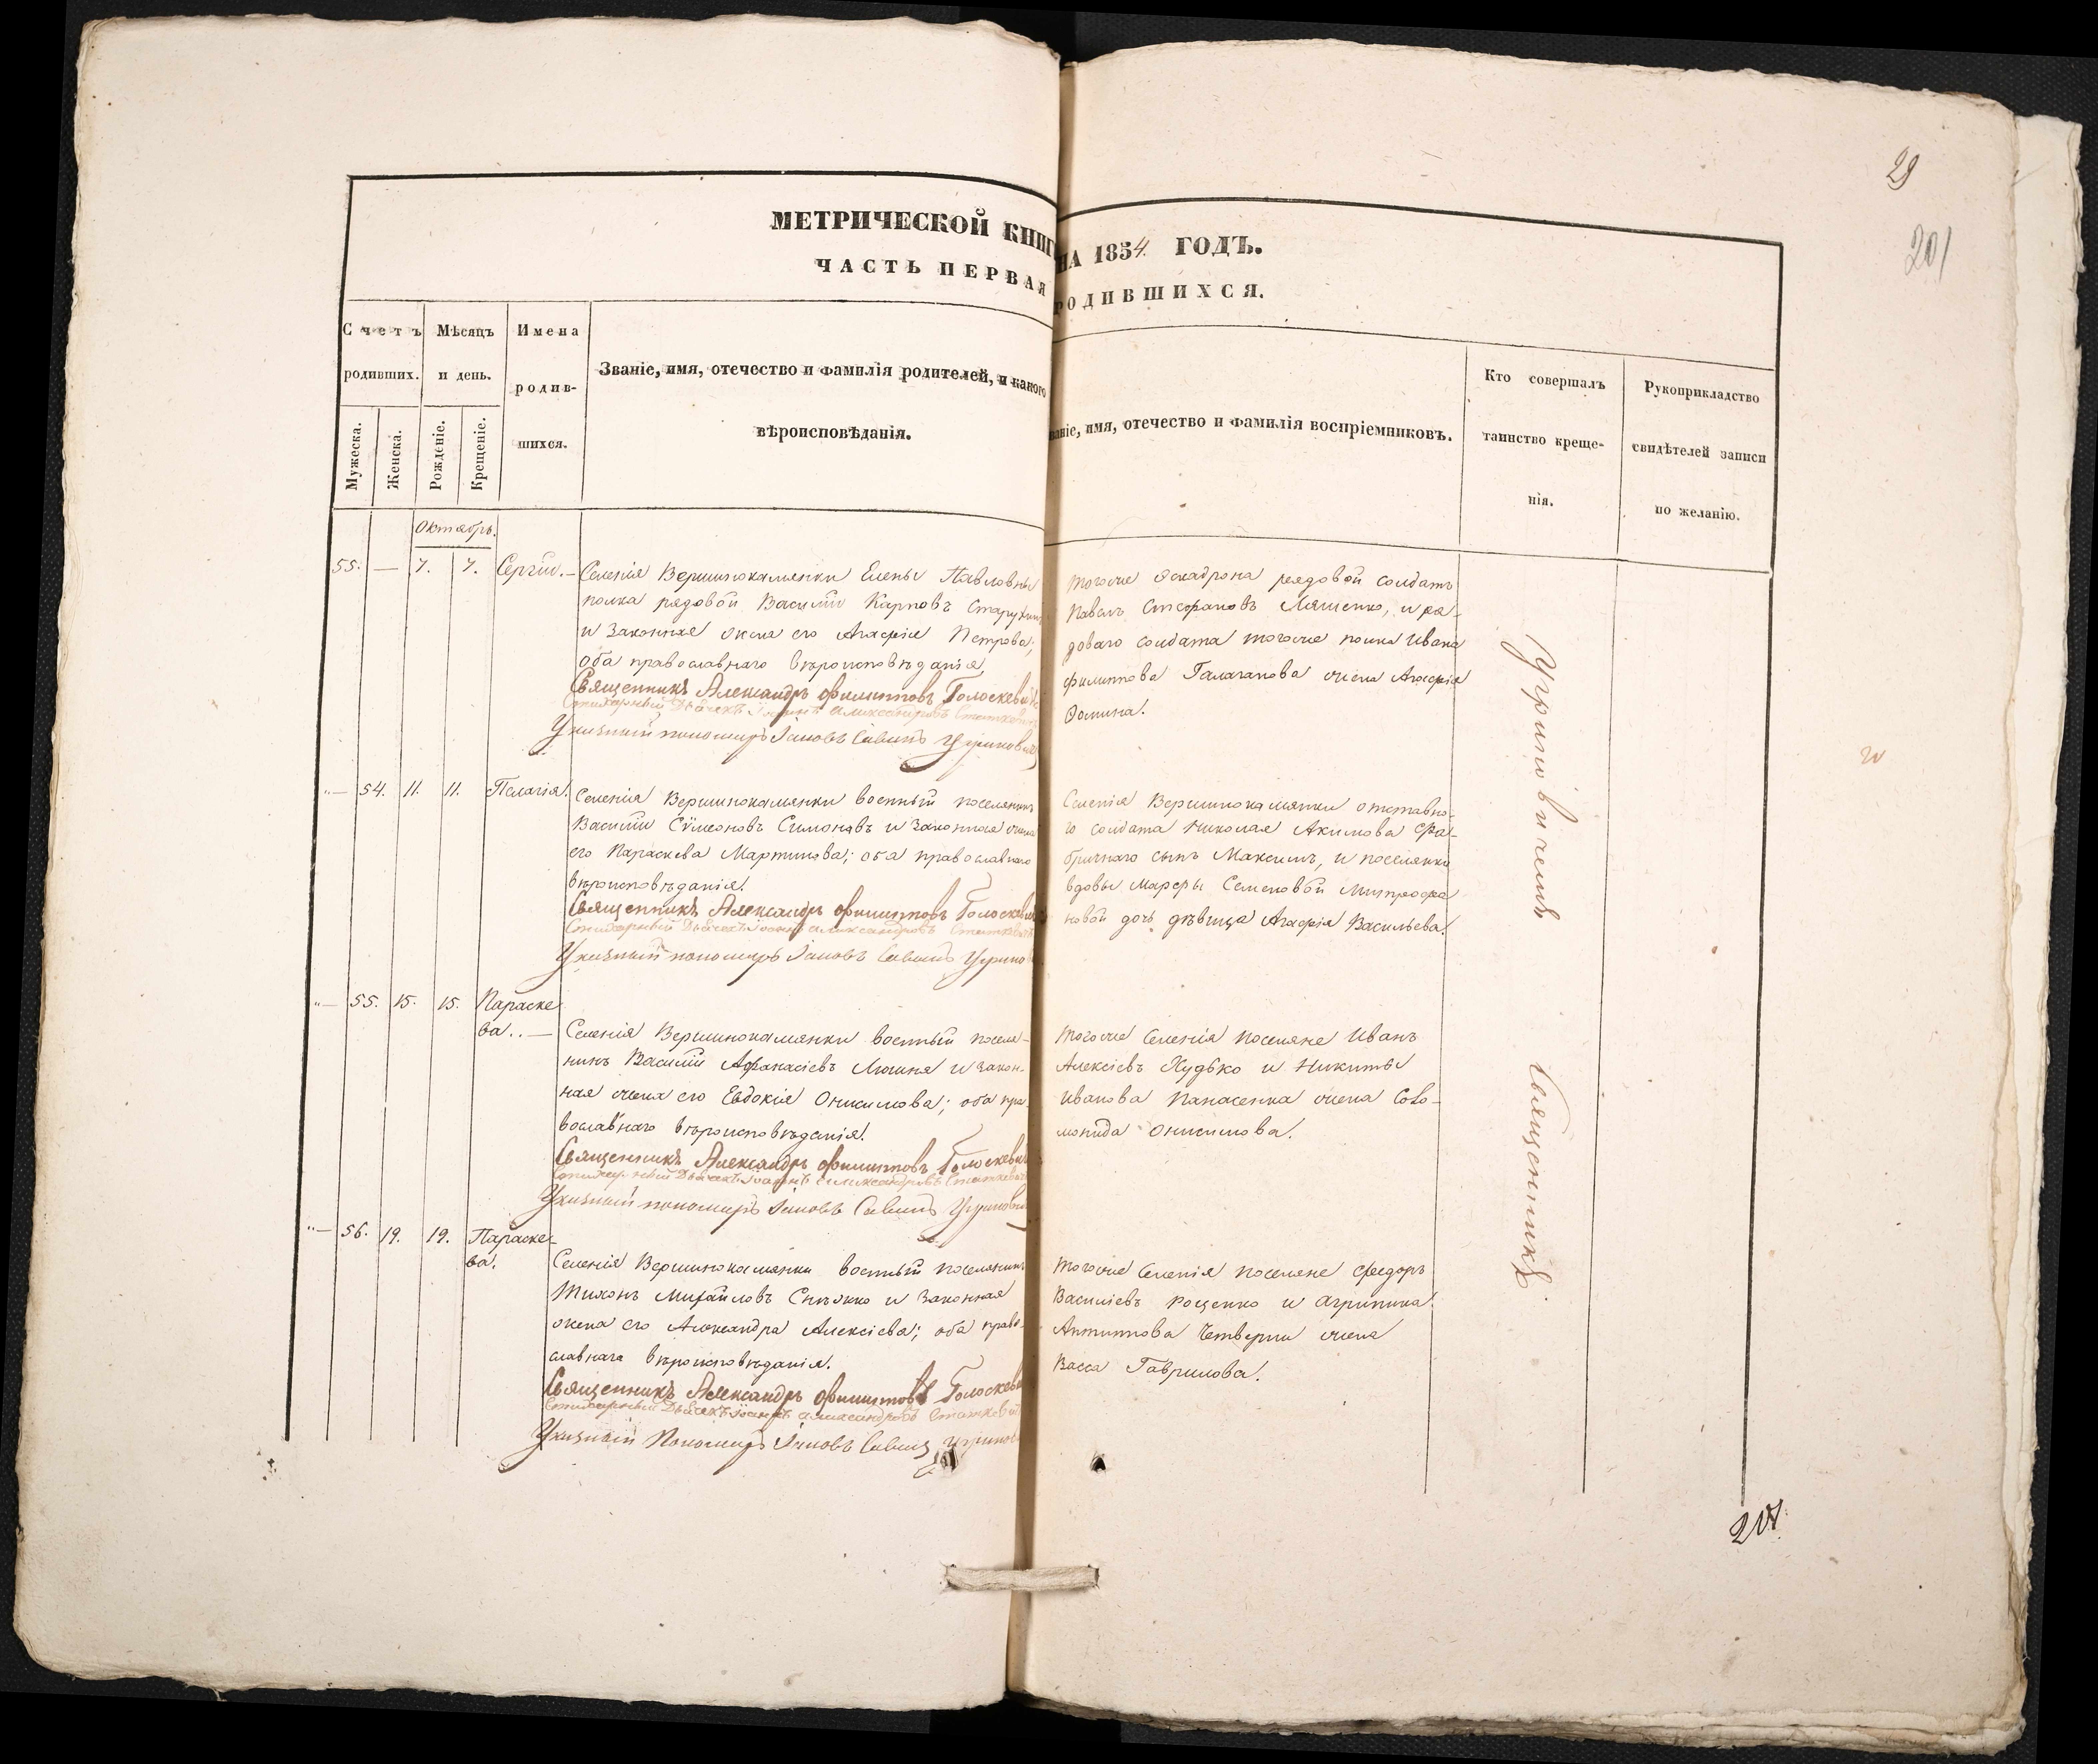 29
201
МЕТРИЧЕСКОЙ КНИГ
НА 1854 ГОДЪ.
ЧАСТЬ ПЕРВАЯ
РОДИВШИХСЯ.
Счетъ родивших.
Мѣсяцъ и день.
Имена родив-
шихся.
Званіе, имя, отечество и фамилія родителей, и какого
вѣроисповѣданія.
Мужеска.
Женска.
Рожденіе.
Крещеніе.
званіе, имя, отечество и фамилія воспріемниковъ.
Кто совершалъ
таинство креще-
нія.
Рукоприкладство
свидѣтелей записи
по желанію.
Октябрь.
55. — 7. 7. Сергій. — Селенія Вершинокамянки Елены Павловны
полка рядовой Василій Карповъ
и законная жена его Агафія Петрова;
оба православнаго вѣроисповѣданія,
Священникъ Александръ Филипповъ Голоскевич
Стихарный Дьячекъ Іоаннъ Александровъ
Указный пономарь Іаковъ Савинъ
тогоже Эскадрона рядовой солдатъ
Павелъ Стефановъ Ляшенко, и ря-
доваго солдата тогоже полка Ивана
Филиппова Галаганова жена Агафія
Фомина.
54. 11. 11. Пелагія. Селенія Вершинокамянки военный поселянинъ
Василій Сѵмеоновъ Симоновъ и законная жена
его Параскева Мартинова; оба православнаго
вѣроисповѣданія.
Священникъ Александръ Филипповъ Голоскевич
Стихарный Дьячекъ Іоаннъ Александровъ
Указный пономарь Іаковъ Савинъ
Селенія Вершинокамянки отставно-
го солдата Николая Акимова Фа-
бричнаго сынъ Максимъ, и поселянки
вдовы Марфы Семеновой Митрофа-
новой дочь дѣвица Агафія Васильева.
55. 15. 15. Параске
ва. — Селенія Вершинокамянки военный поселя-
нинъ Василій Афанасіевъ и закон-
ная жена его Евдокія Онисимова; оба пра-
вославнаго вѣроисповѣданія.
Священникъ Александръ Филипповъ Голоскевич
Стихарный Дьячекъ Іоаннъ Александровъ
Указный пономарь Іаковъ Савинъ
Тогоже Селенія поселяне Иванъ
Алексіевъ Худько и Никиты
Иванова Панасенка жена Соло-
монида Онисимова.
56. 19. 19. Параске-
ва. Селенія Вершинокамянки военный поселянинъ
Тихонъ Михайловъ и законная
жена его Александра Алексіева; оба право-
славнаго вѣроисповѣданія.
Священникъ Александръ Филипповъ Голоскевич
Стихарный Дьячекъ Іоаннъ Александровъ
Указный Пономарь Іаковъ Савинъ
Тогоже Селенія поселяне Феодоръ
Василіевъ Рощенко и Агрипина
Антипова жена
Васса Гаврилова.
Священникъ
201